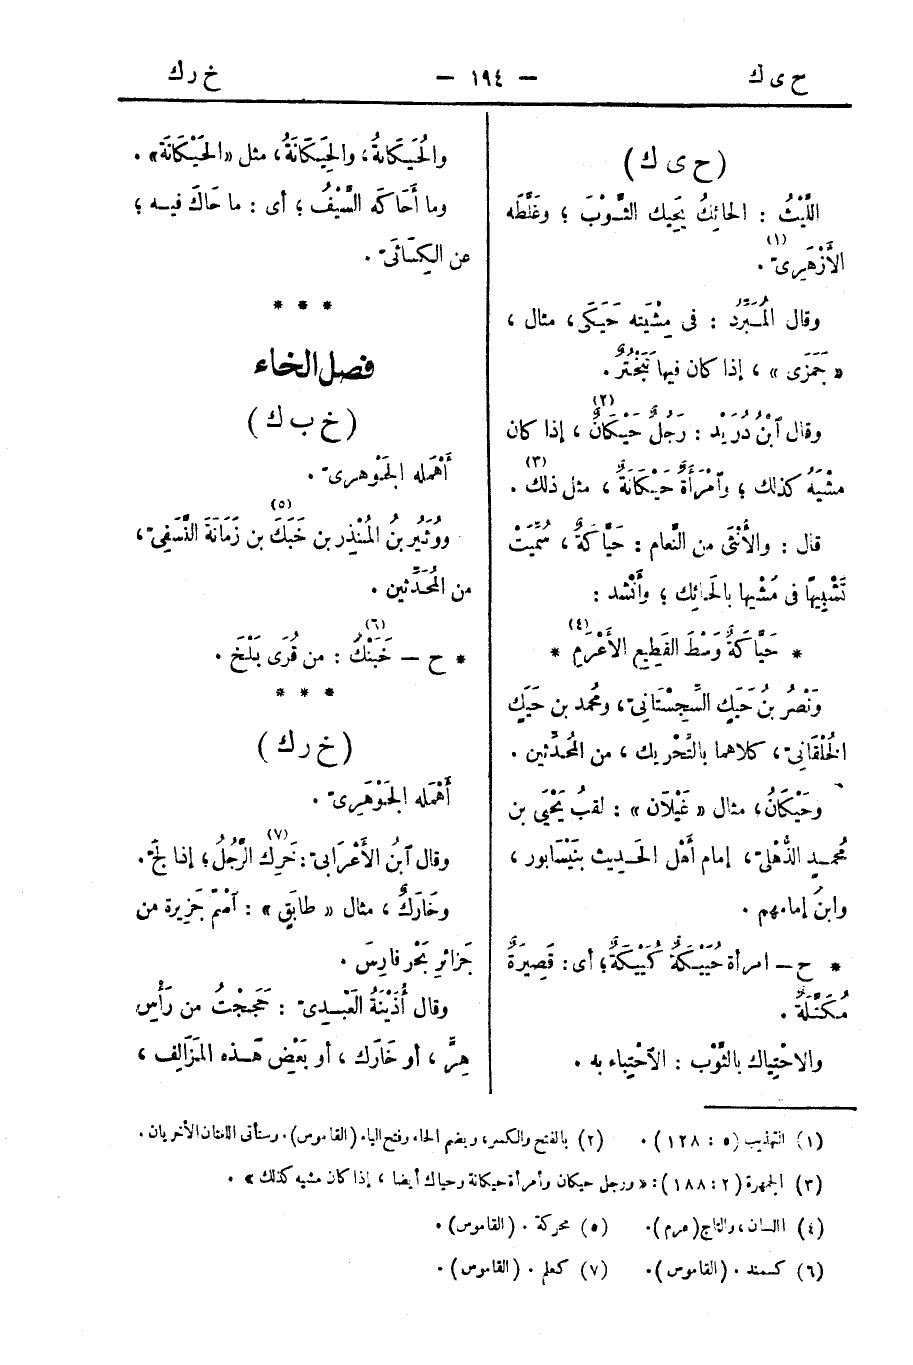 ح ى ك — ١٩٤ — خ ر ك
(ح ى ك)
اللَّيْثُ : الحائِكُ يَحِيك الثَّوْبَ ؛ وغَلَّطَه
الأَزْهَرِىّ (١) .
وقال المُبَرِّدُ : فى مِشْيَتِه حَيَكَى ، مثال ،
« جَمَزَى » ، إذا كان فيها تَبَخْتُرٌ .
وقال ٱبْنُ دُرَيْد : رَجُلٌ حَيْكَانٌ (٢) ، إذا كان
مَشْيُهُ كذلك ؛ وٱمْرَأَةٌ حَيْكَانَةٌ (٣) ، مثل ذلك .
قال : والأُنْثَى من النَّعام : حَيَّاكَةٌ ، سُمِّيَتْ
تَشْبِيهًا فى مَشْيِها بالحَائِك ؛ وأَنْشد :
* حَيَّاكَةٌ وَسْطَ القَطِيعِ الأَعْرَمِ (٤) *
وَنَصْرُ بنُ حَيَكٍ السِّجِسْتانِىّ ، ومُحمد بن حَيَكٍ
الخُلْقَانِىّ ، كلاهما بالتَّحْرِيك ، من المُحَدِّثين .
وحَيْكَانُ ، مثال « غَيْلَان » : لقبُ يَحْيَى بن
مُحمدٍ الذُّهْلِىّ ، إمام أَهْل الحَديث بنَيْسَابور ،
وابنُ إمامهم .
* ح — امرأة حُيَيْكَةٌ كُيَيْكَةٌ ؛ أى : قَصِيرَةٌ
مُكَتَّلَةٌ .
والاحْتِياك بالثَّوْب : الاحْتِباء به .
والحُيَكَانَةُ ، والحِيَكَّانَةُ ، مثل «الحَيْكَانَة» .
وما أَحَاكَه السَّيْفُ ؛ أى : ما حَاكَ فيه ؛
عن الكِسَائىّ .
* * *
فصل الخاء
(خ ب ك)
أَهْمَله الجَوْهرىّ .
ووُثَيْرُ بنُ المُنْذِر بن خَبَكَ (٥) بن زَمَانَةَ النَّسَفِىّ ،
من المُحَدِّثين .
* ح — خَبَنْكُ (٦) : من قُرَى بَلْخَ .
* * *
(خ ر ك)
أَهْمَله الجَوْهَرِىّ .
وقال ٱبنُ الأَعْرَابىّ : خَرِكَ (٧) الرَّجُلُ ؛ إذا لَجّ .
وخَارَكُ ، مثال « طابَقٍ » : ٱسْمُ جَزيرة من
جَزائرِ بَحْرِ فارِسَ .
وقال أُذَيْنَةُ العَبْدِىّ : حَجَجْتُ من رَأْسِ
هِرٍّ ، أو خَارَك ، أو بَعْضِ هَذه المَزَالِف ،
(١) التهذيب (٥ : ١٢٨) . (٢) بالفتح والكسر ، وبضم الحاء وفتح الياء (القاموس) . وستأتى اللغتان الأخريان .
(٣) الجمهرة (٢ : ١٨٨) : « ورجل حيكان وأمرأة حيكانة وحياك أيضا ، إذا كان مشيه كذلك » .
(٤) اللسان ، والتاج (عرم) . (٥) محركة . (القاموس) .
(٦) كسمند . (القاموس) . (٧) كعلم . (القاموس) .